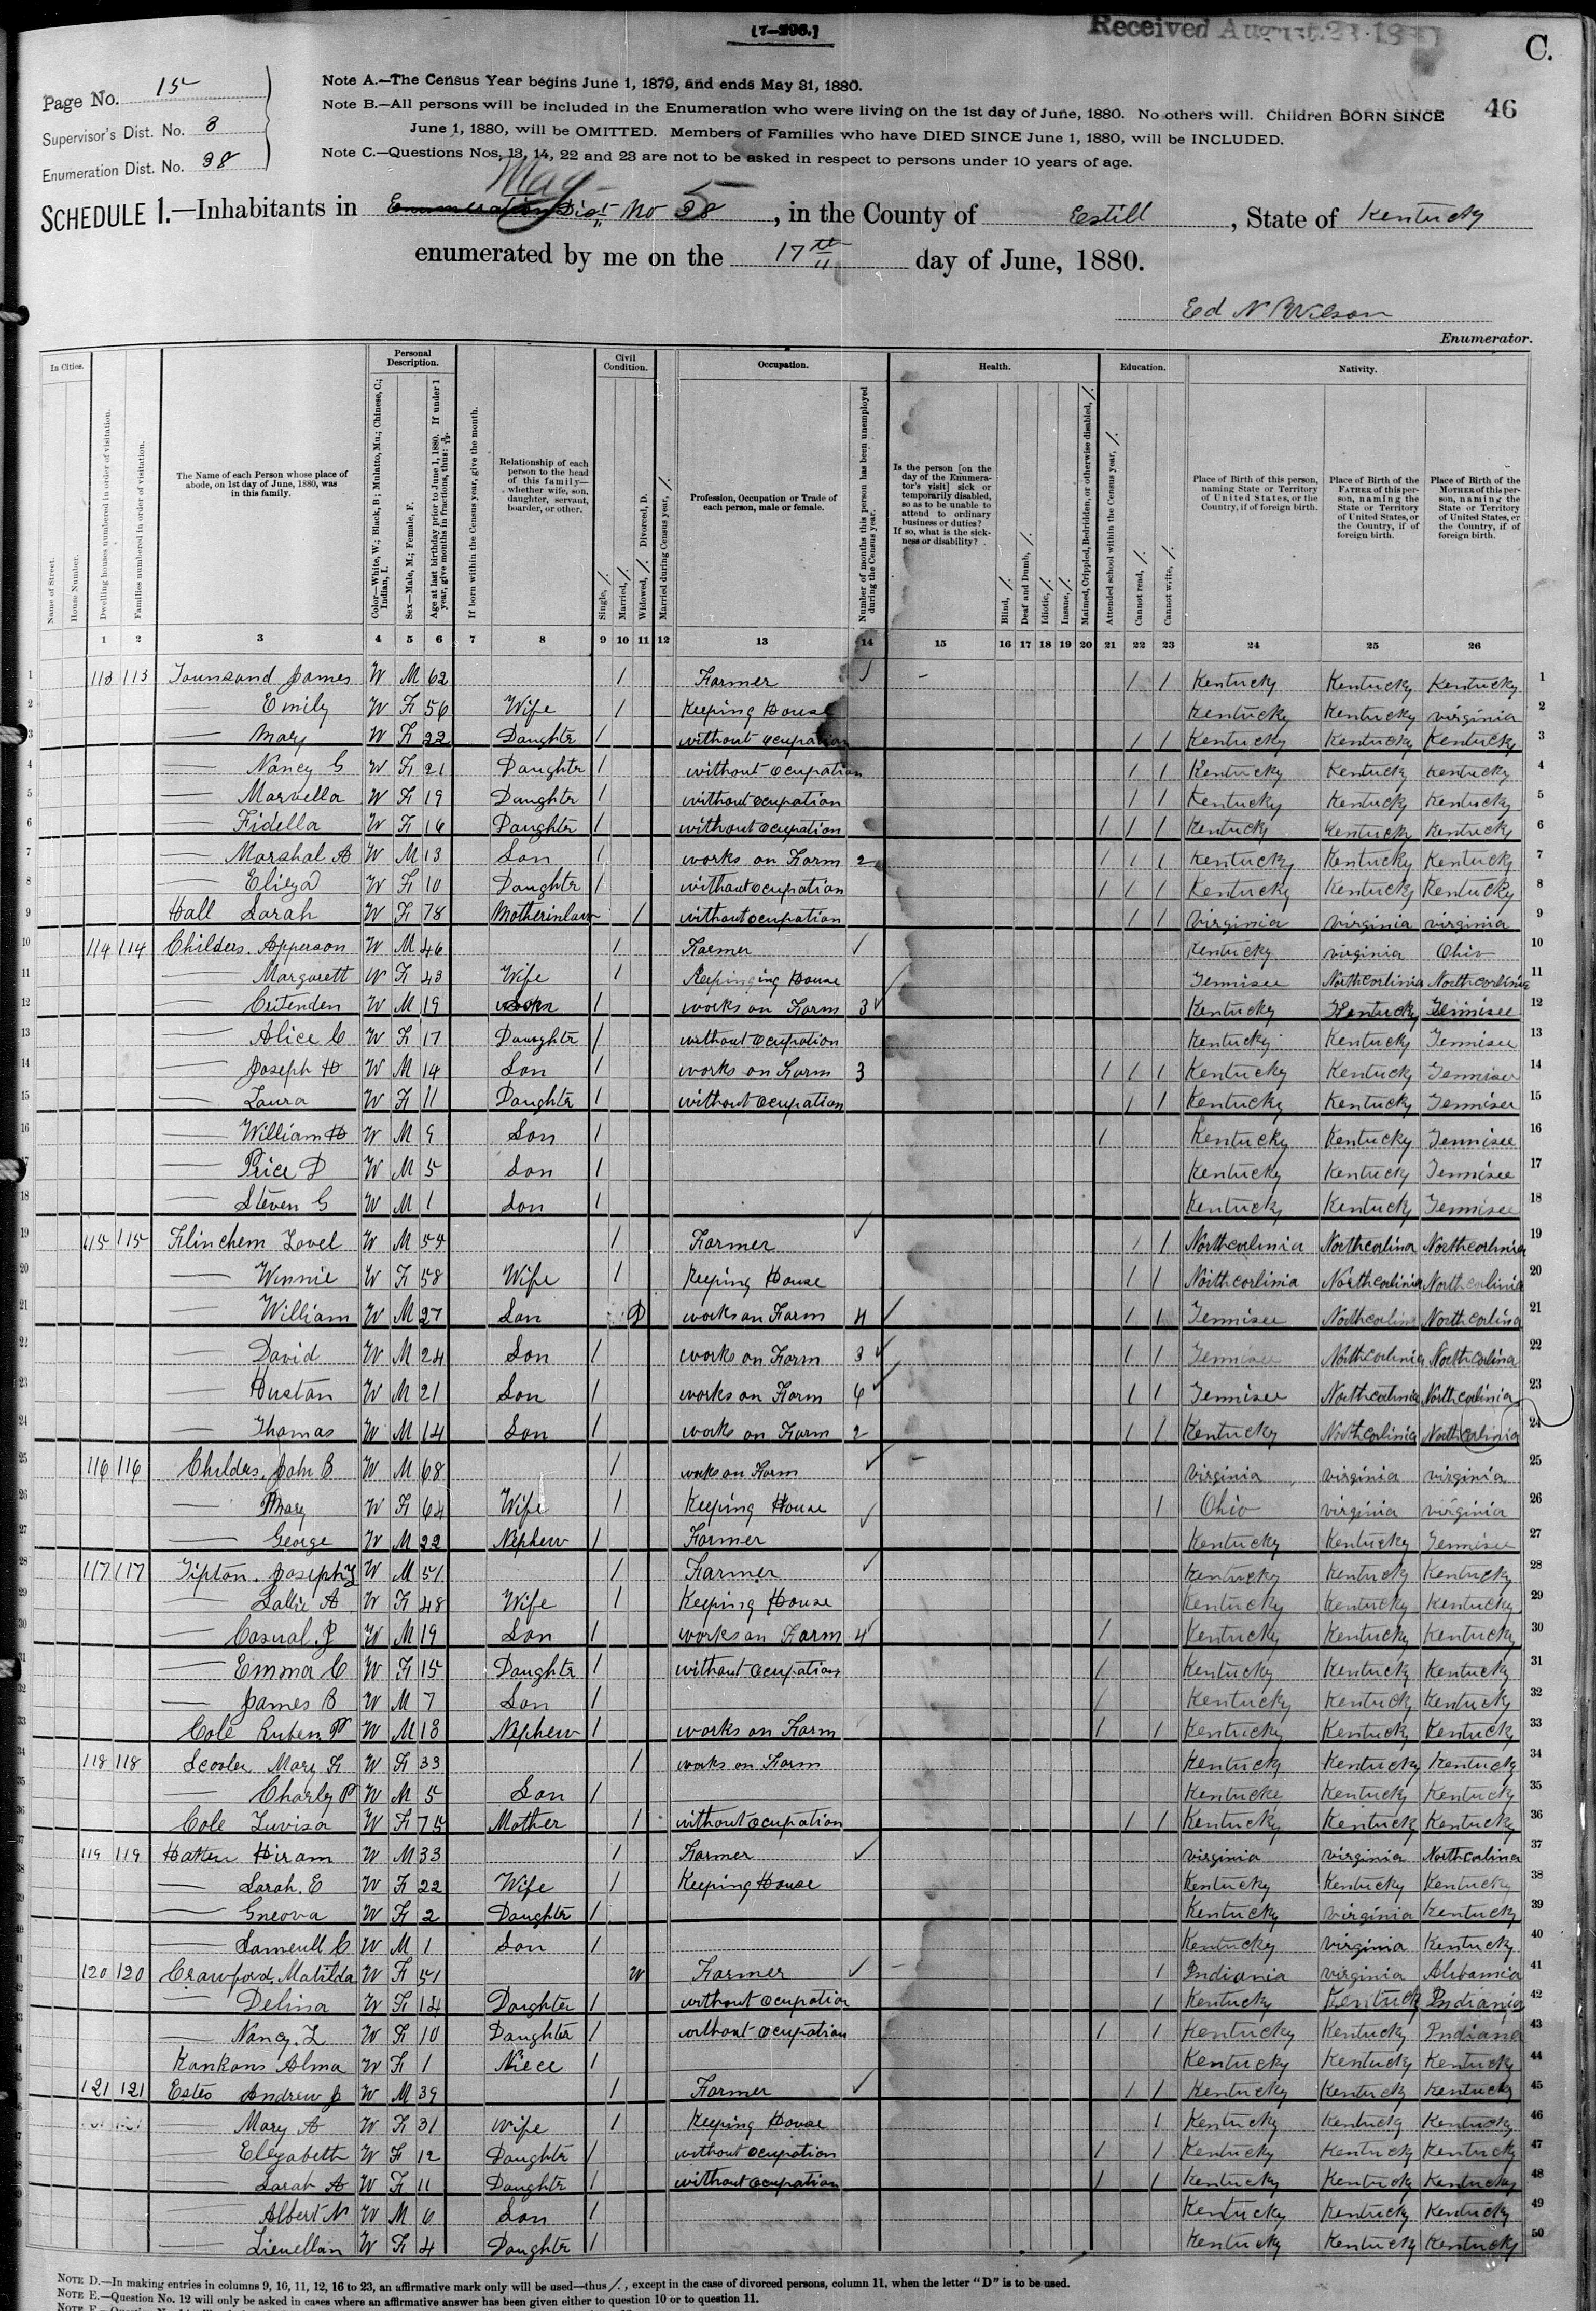 [7-296.]
Received August 23 1880
C.
Page No. 15
Supervisor's Dist. No. 8
Enumeration Dist. No. 38
46
Note A.—The Census Year begins June 1, 1879, and ends May 31, 1880.
Note B.—All persons will be included in the Enumeration who were living on the 1st day of June, 1880. No others will. Children BORN SINCE
June 1, 1880, will be OMITTED. Members of Families who have DIED SINCE June 1, 1880, will be INCLUDED.
Note C.—Questions Nos. 13, 14, 22 and 23 are not to be asked in respect to persons under 10 years of age.
SCHEDULE 1.—Inhabitants in Enumeration Dist No 38 Mag 5, in the County of Estill, State of Kentucky
enumerated by me on the 17th day of June, 1880.
Ed N Wilson
Enumerator.
In Cities. Personal Description. Civil Condition. Occupation. Health. Education. Nativity.
Name of Street.
House Number.
Dwelling houses numbered in order of visitation.
Families numbered in order of visitation.
The Name of each Person whose place of abode, on 1st day of June, 1880, was in this family.
Color—White, W.; Black, B; Mulatto, Mu.; Chinese, C.; Indian, I.
Sex—Male, M.; Female, F.
Age at last birthday prior to June 1, 1880. If under 1 year, give months in fractions, thus: 3/12.
If born within the Census year, give the month.
Relationship of each person to the head of this family—whether wife, son, daughter, servant, boarder, or other.
Single, /.
Married, /.
Widowed, /. Divorced, D.
Married during Census year, /.
Profession, Occupation or Trade of each person, male or female.
Number of months this person has been unemployed during the Census year.
Is the person [on the day of the Enumerator's visit] sick or temporarily disabled, so as to be unable to attend to ordinary business or duties? If so, what is the sickness or disability?
Blind, /.
Deaf and Dumb, /.
Idiotic, /.
Insane, /.
Maimed, Crippled, Bedridden, or otherwise disabled, /.
Attended school within the Census year, /.
Cannot read, /.
Cannot write, /.
Place of Birth of this person, naming State or Territory of United States, or the Country, if of foreign birth.
Place of Birth of the FATHER of this person, naming the State or Territory of United States, or the Country, if of foreign birth.
Place of Birth of the MOTHER of this person, naming the State or Territory of United States, or the Country, if of foreign birth.
1 2 3 4 5 6 7 8 9 10 11 12 13 14 15 16 17 18 19 20 21 22 23 24 25 26
1 113 113 Tounsand James W M 62 / Farmer / - / / Kentucky Kentucky Kentucky 1
2 — Emily W F 56 Wife / Keeping House Kentucky Kentucky virginia 2
3 — Mary W F 22 Daughter / without ocupation / / Kentucky Kentucky Kentucky 3
4 — Nancy G W F 21 Daughter / without ocupation / / Kentucky Kentucky Kentucky 4
5 — Marvella W F 19 Daughter / without ocupation / / Kentucky Kentucky Kentucky 5
6 — Fidella W F 16 Daughter / without ocupation / / / Kentucky Kentucky Kentucky 6
7 — Marshal A W M 13 Son / works on Farm 2 / / / Kentucky Kentucky Kentucky 7
8 — Eliza W F 10 Daughter / without ocupation / / / Kentucky Kentucky Kentucky 8
9 Hall Sarah W F 78 Motherinlaw / without ocupation / / Virginia virginia virginia 9
10 114 114 Childers. Apperson W M 46 / Farmer ✓ Kentucky virginia Ohio 10
11 — Margarett W F 43 Wife / Keepinging House Tennisee Northcorlinia Northcorlinia 11
12 — Critenden W M 19 Son / works on Farm 3 ✓ Kentucky Kentucky Tennisee 12
13 — Alice C W F 17 Daughter / without ocupation Kentucky Kentucky Tennisee 13
14 — Joseph H W M 14 Son / works on Farm 3 / / / Kentucky Kentucky Tennisee 14
15 — Laura W F 11 Daughter / without ocupation / / Kentucky Kentucky Tennisee 15
16 — William H W M 9 Son / / Kentucky Kentucky Tennisee 16
17 — Price D W M 5 Son / Kentucky Kentucky Tennisee 17
18 — Steven G W M 1 Son / Kentucky Kentucky Tennisee 18
19 115 115 Flinchem Lovel W M 54 / Farmer ✓ / / Northcorlinia Northcorlina Northcorlinia 19
20 — Winnie W F 58 Wife / Keeping House / / Northcorlinia Northcorlinia Northcorlinia 20
21 — William W M 27 Son D works on Farm 4 ✓ / / Tennisee Northcorlina Northcorlina 21
22 — David W M 24 Son / works on Farm 3 ✓ / / Tennisee Northcorlinia Northcorlina 22
23 — Huston W M 21 Son / works on Farm 6 ✓ / / Tennisee Northcorlinia Northcorlinia 23
24 — Thomas W M 14 Son / works on Farm 2 / / Kentucky Northcorlinia Northcorlinia 24
25 116 116 Childers. John B W M 68 / works on Farm ✓ - virginia virginia virginia 25
26 — Mary W F 64 Wife / Keeping House / Ohio virginia virginia 26
27 — George W M 22 Nephew / Farmer ✓ Kentucky Kentucky Tennisee 27
28 117 117 Tipton. Joseph W M 51 / Farmer ✓ Kentucky Kentucky Kentucky 28
29 — Sallie A W F 48 Wife / Keeping House Kentucky Kentucky Kentucky 29
30 — Casual. J W M 19 Son / works on Farm 4 / Kentucky Kentucky Kentucky 30
31 — Emma C W F 15 Daughter / without ocupation / Kentucky Kentucky Kentucky 31
32 — James B W M 7 Son / / Kentucky Kentucky Kentucky 32
33 Cole Ruben W M 18 Nephew / works on Farm / / Kentucky Kentucky Kentucky 33
34 118 118 Mary F W F 33 / works on Farm Kentucky Kentucky Kentucky 34
35 — Charley P W M 5 Son / Kentucke Kentucky Kentucky 35
36 Cole Luvisa W F 75 Mother / without ocupation / / Kentucky Kentucky Kentucky 36
37 119 119 Hiram W M 33 / Farmer ✓ virginia virginia Northcorlina 37
38 — Sarah. E W F 22 Wife / Keeping House Kentucky Kentucky Kentucky 38
39 — Gneova W F 2 Daughter / Kentucky virginia Kentucky 39
40 — Lameull C W M 1 Son / Kentucky virginia Kentucky 40
41 120 120 Crawford. Matilda W F 51 W Farmer ✓ - / Indiania virginia Alibamia 41
42 — Delina W F 14 Daughter / without ocupation / Kentucky Kentucky Indiania 42
43 — Nancy. L W F 10 Daughter / without ocupation / / Kentucky Kentucky Indiana 43
44 Kankans Alma W F 1 Niece / Kentucky Kentucky Kentucky 44
45 121 121 Estes Andrew J W M 39 / Farmer ✓ / / Kentucky Kentucky Kentucky 45
46 — Mary A W F 31 Wife / Keeping House / Kentucky Kentucky Kentucky 46
47 — Elizabeth W F 12 Daughter / without ocupation / / Kentucky Kentucky Kentucky 47
48 — Sarah A W F 11 Daughter / without ocupation / / Kentucky Kentucky Kentucky 48
49 — Albert N W M 6 Son / Kentucky Kentucky Kentucky 49
50 — Liewellan W F 4 Daughter / Kentucky Kentucky Kentucky 50
NOTE D.—In making entries in columns 9, 10, 11, 12, 16 to 23, an affirmative mark only will be used—thus /., except in the case of divorced persons, column 11, when the letter "D" is to be used.
NOTE E.—Question No. 12 will only be asked in cases where an affirmative answer has been given either to question 10 or to question 11.